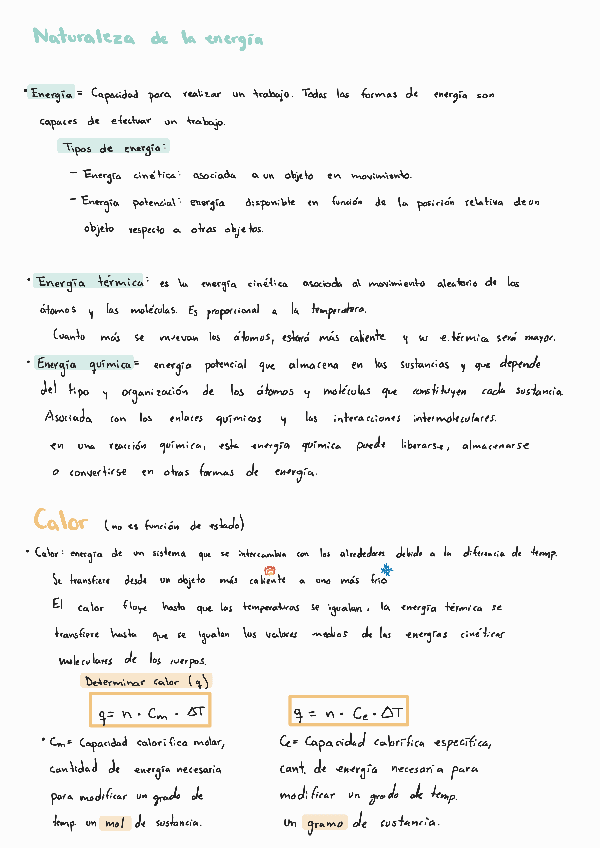 Naturaleza de la energía
• Energía = Capacidad para realizar un trabajo. Todas las formas de energía son
capaces de efectuar un trabajo.
Tipos de energía:
- Energía cinética: asociada a un objeto en movimiento.
- Energía potencial: energía disponible en función de la posición relativa de un
objeto respecto a otros objetos.
• Energía térmica: es la energía cinética asociada al movimiento aleatorio de los
átomos y las moléculas. Es proporcional a la temperatura.
Cuanto más se muevan los átomos, estará más caliente y su e.térmica será mayor.
• Energía química = energía potencial que almacena en las sustancias y que depende
del tipo y organización de los átomos y moléculas que constituyen cada sustancia.
Asociada con los enlaces químicos y las interacciones intermoleculares.
en una reacción química, esta energía química puede liberarse, almacenarse
o convertirse en otras formas de energía.
Calor (no es función de estado)
• Calor: energía de un sistema que se intercambia con los alrededores debido a la diferencia de temp.
Se transfiere desde un objeto más caliente a uno más frío
El calor fluye hasta que las temperaturas se igualan, la energía térmica se
transfiere hasta que se igualan los valores medios de las energías cinéticas
moleculares de los cuerpos.
Determinar calor (q)
q = n · Cm · ΔT
q = n · Ce · ΔT
• Cm = Capacidad calorífica molar,
cantidad de energía necesaria
para modificar un grado de
temp. un mol de sustancia.
Ce = Capacidad calorífica específica,
cant. de energía necesaria para
modificar un grado de temp.
un gramo de sustancia.